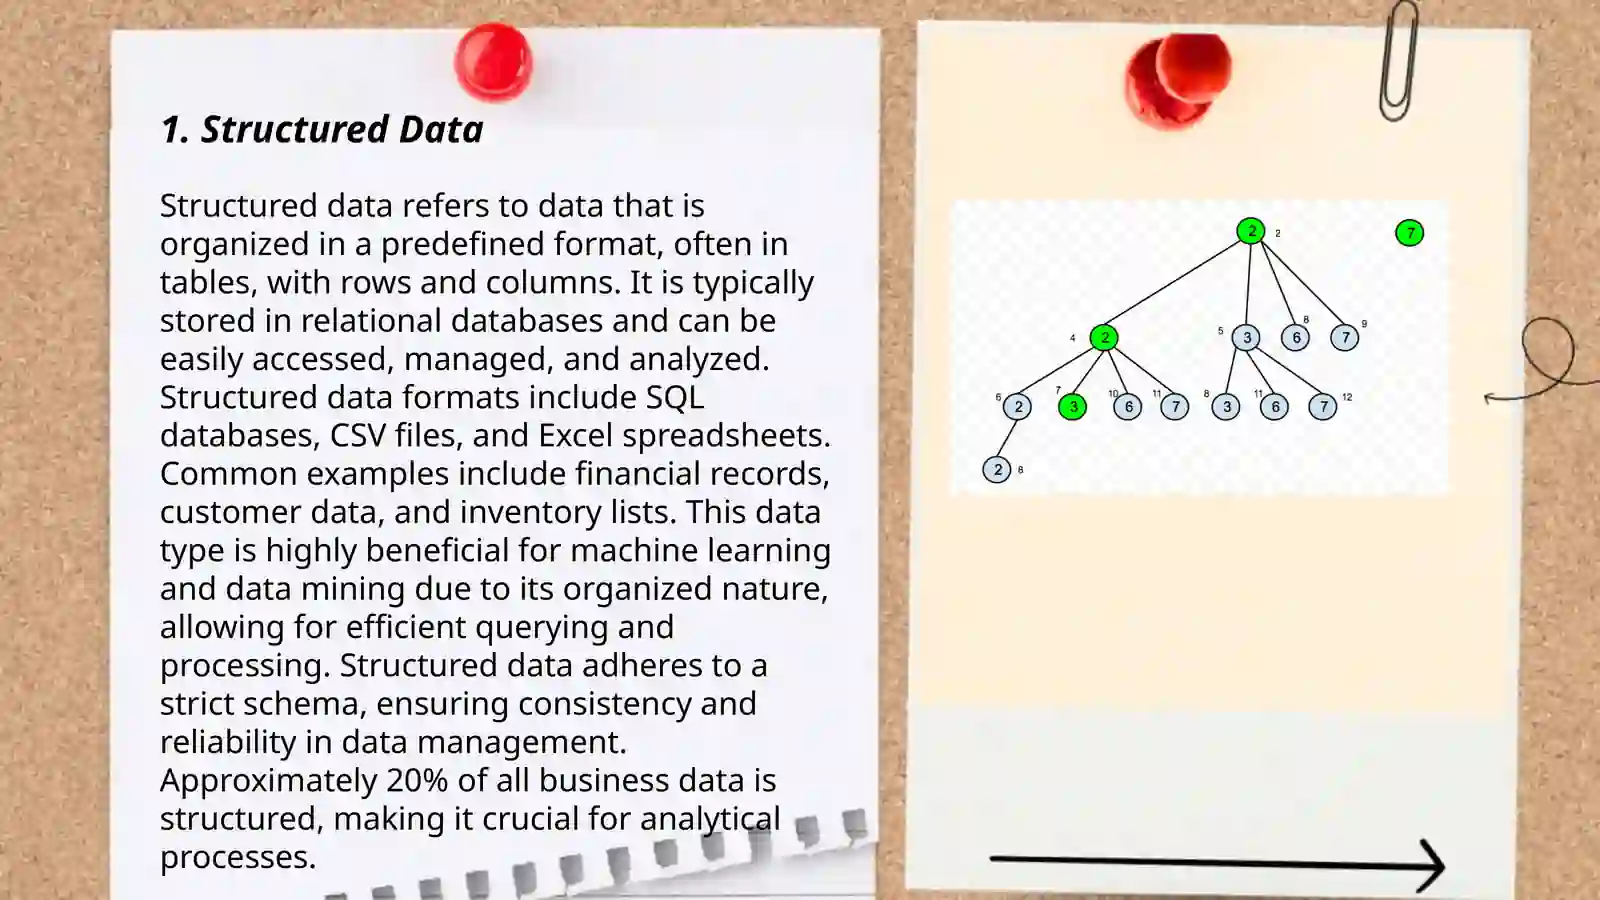 1. Structured Data
Structured data refers to data that is
organized in a predefined format, often in
tables, with rows and columns. It is typically
stored in relational databases and can be
easily accessed, managed, and analyzed.
Structured data formats include SQL
databases, CSV files, and Excel spreadsheets.
Common examples include financial records,
customer data, and inventory lists. This data
type is highly beneficial for machine learning
and data mining due to its organized nature,
allowing for efficient querying and
processing. Structured data adheres to a
strict schema, ensuring consistency and
reliability in data management.
Approximately 20% of all business data is
structured, making it crucial for analytical
processes.
2 2 7
4 2 5 3 6 8 7 9
6 2 7 3 10 6 11 7 8 3 11 6 7 12
2 8